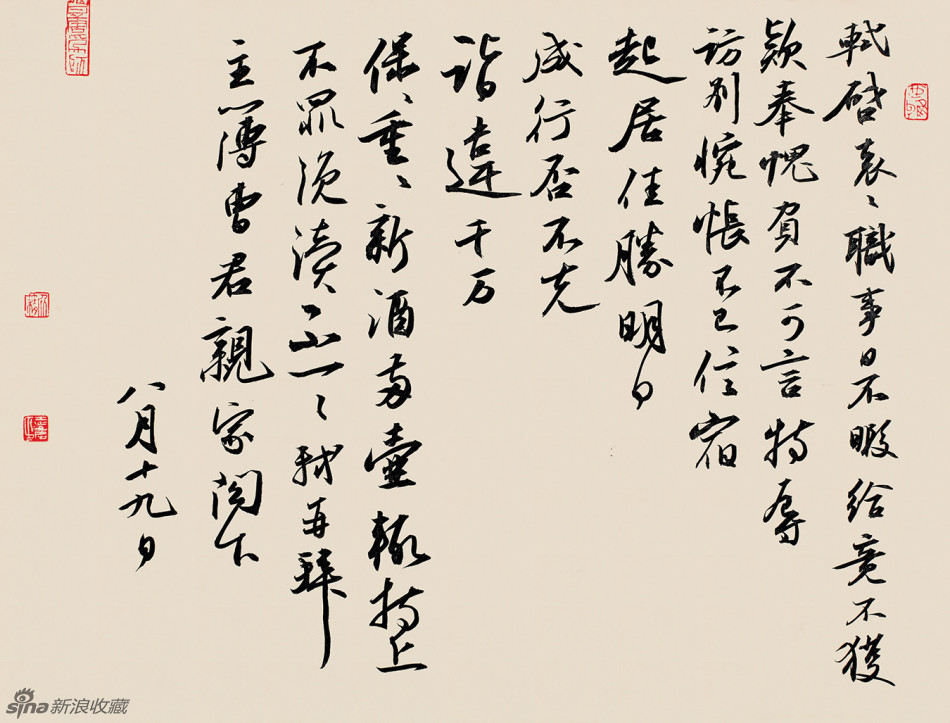 軾啓衮〻職事日不暇給竟不獲
款奉愧負不可言特辱
訪别惋悵不已信宿
起居佳勝明日
成行否不克
詣違千万
保〻重〻新酒两壺輙持上
不罪浼瀆不一〻軾再拜
主簿曹君親家閤下
八月十九日
sina新浪收藏